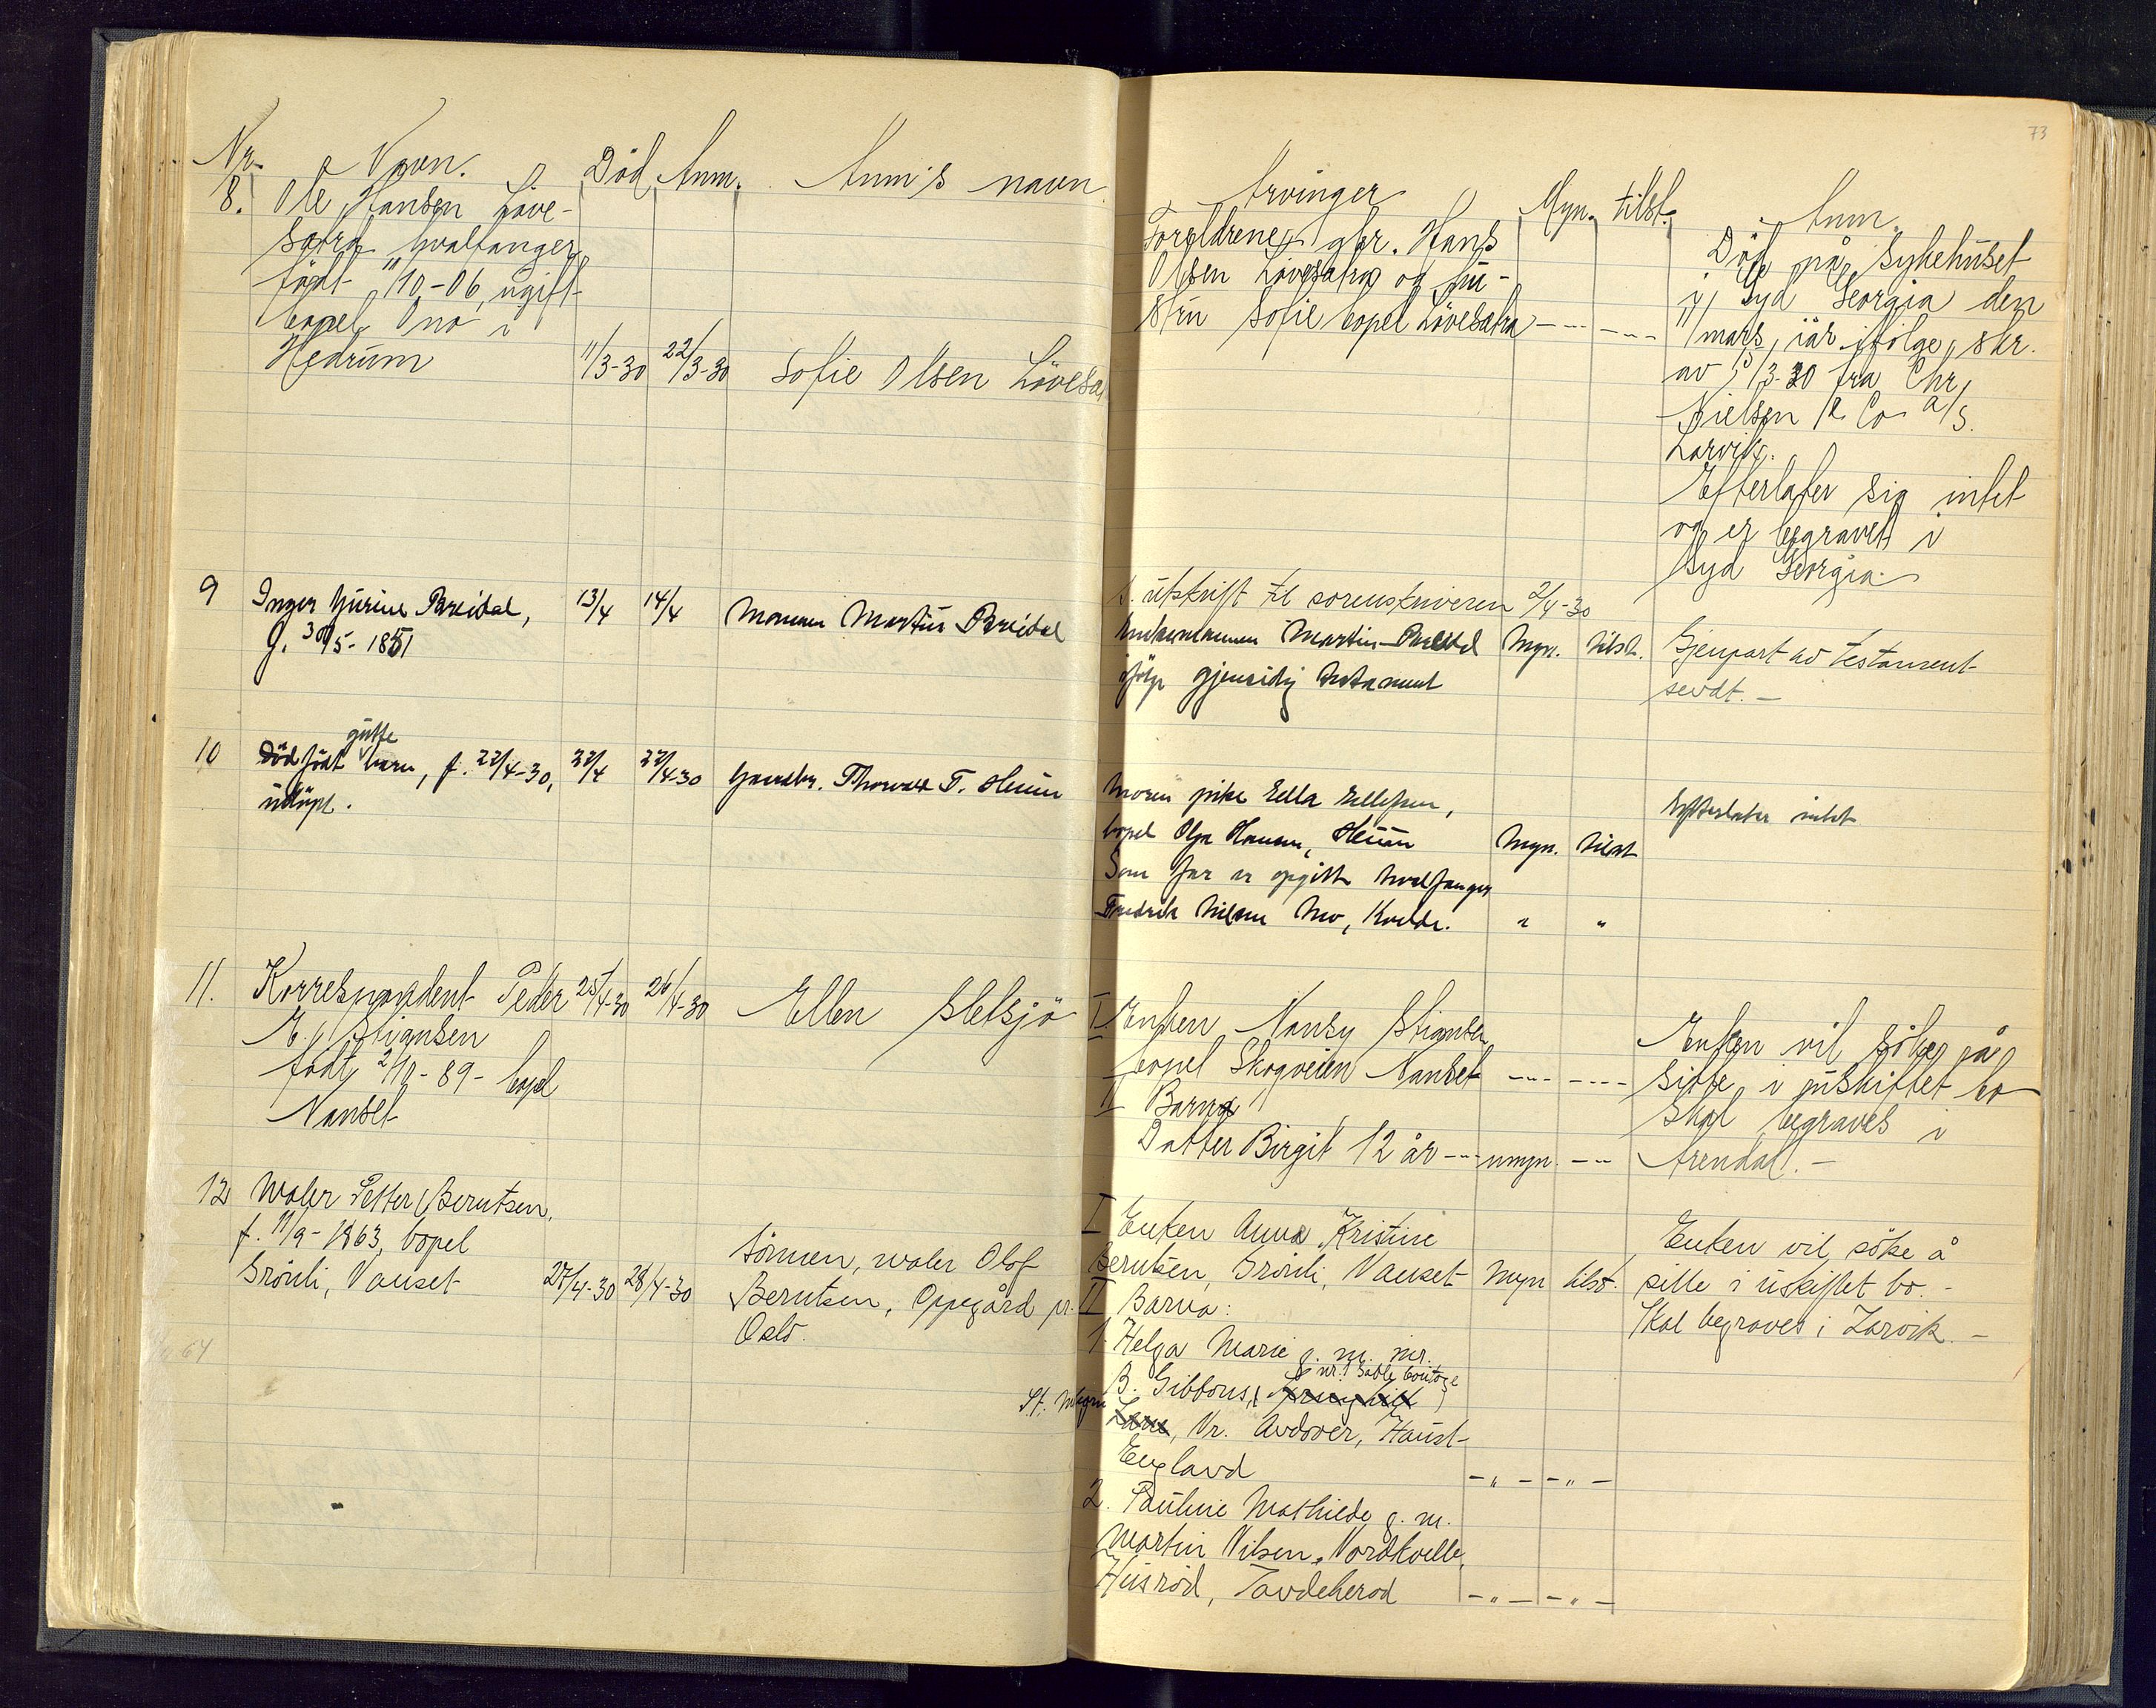 Nr. Navn. Död Anm. Anm's navn
8. Ole Hansen Löve-
sætra, hvalfanger
født 11/10-06, ugift
bopel Ono i
Hedrum 11/3-30 22/3-30 Sofie Olsen Lövesæ
9 Inger Gurine Breidal, 13/4 14/4 Mannen Martin Breidal
f. 30/5-1851
gutte
10 Dödfödt barn, f. 22/4-30, 22/4 22/4-30 Gaardbr. Thorvald T. Heum
udöpt.
11. Korrespondent Peder 25/4-30 26/4-30 Ellen Sletsjö
E. Stiansen
född 2/10-89- bopel
Nanset
12 Maler Petter Berntsen,
f. 11/9-1863, bopel
Grönli, Nanset 27/4-30 28/4-30 Sönnen, maler Olof
Berntsen, Oppegård pr.
Oslo.
64
73
Arvinger Myn. tilst. Anm.
Foreldrene, gbr. Hans
Olsen Lövesætra og hu-
stru Sofie bopel Lövesætra
Död på sykehuset
i Syd Georgia den
11 mars iår ifölge skr.
av 15/3-30 fra Chr.
Nielsen & Co a/s.
Larvik.
Efterlater sig intet
og er begravet i
Syd Georgia.
S. utskrift til sorenskriveren 2/4-30
Enkemannen Martin Breidal Myn. tilst. Gjenpart av testament
ifölge gjensidig testament sendt. -
Moren pike Ella Ellefsen, Efterlater intet
bopel Olga Hansen, Heum Myn. tilst
Som far er opgitt hvalfanger
Fredrik Nilsen Mo, Kvelde. " "
I Enken Nansy Stiansen
bopel Skogveien Nanset
II Barna
Datter Birgit 12 år umyn.
Enken vil söke på
sitte i uskiftet bo
Skal begraves i
Arendal. -
I Enken Anna Kristine
Berntsen, Grönli, Nanset Myn tilst.
II Barna:
Enken vil söke å
sitte i uskiftet bo. -
Skal begraves i Larvik. -
1. Helga Marie g. m. mr.
B. Gibbons,
Lane, Nr. Andover, Haust-
England - " - - " -
2. Pauline Mathilde g. m.
Martin Nilsen, Nordkvelle,
Husröd, Tandeherod - " - - " -